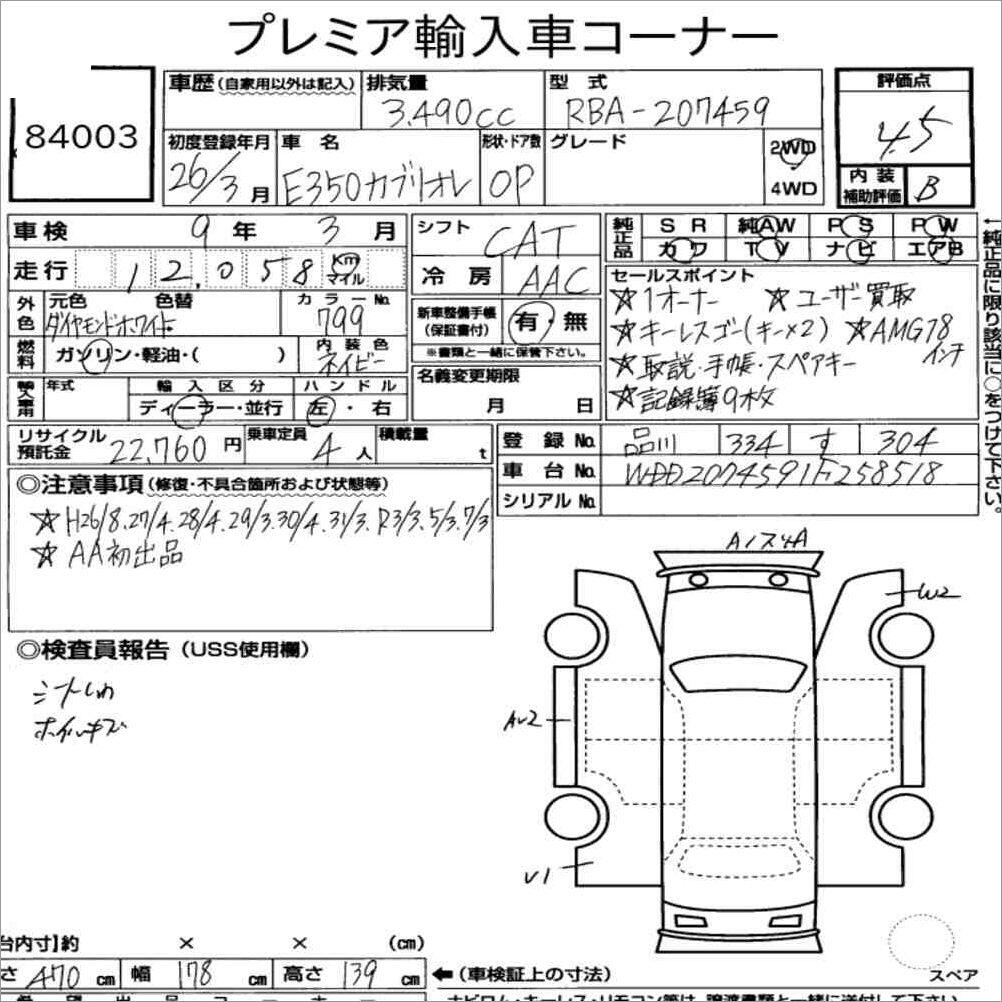 プレミア輸入車コーナー
84003
車歴(自家用以外は記入)
排気量
3.490cc
型式
RBA-207459
評価点
4.5
初度登録年月
26/3月
車名
E350カブリオレ
形状・ドア数
OP
グレード
2WD
4WD
内装補助評価
B
車検 9年 3月
シフト
CAT
純正品
SR 純AW PS PW
カワ TV ナビ エアB
走行 12.058 Km マイル
冷房
AAC
外色
元色 色替
ダイヤモンドホワイト
カラーNo.
799
新車整備手帳(保証書付)
有・無
※書類と一緒に保管下さい。
セールスポイント
☆1オーナー ☆ユーザー買取
☆キーレスゴー(キー×2) ☆AMG18インチ
☆取説・手帳・スペアキー
☆記録簿9枚
←純正品に限り該当に○をつけて下さい。
燃料
ガソリン・軽油・( )
内装色
ネイビー
名義変更期限
月 日
輸入車用
年式
輸入区分
ディーラー・並行
ハンドル
左・右
リサイクル預託金
22,760円
乗車定員
4人
積載量
t
登録No.
品川 334 す 304
車台No.
WDD2074591F258518
シリアルNo.
◎注意事項(修復・不具合箇所および状態等)
☆H26/8.27/4.28/4.29/3.30/4.31/3.R3/3.5/3.7/3
☆AA初出品
◎検査員報告(USS使用欄)
ホイルキズ
W2
V1
台内寸】約 × × (cm)
さ 470 cm 幅 178 cm 高さ 139 cm
←(車検証上の寸法)
スペア